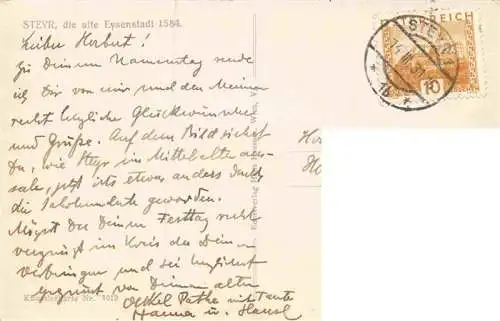 STEYR, die alte Eysenstadt 1584.
Lieber Herbert!
Zu Deinem Namenstag sende
ich Dir von mir und den Meinen
recht herzliche Glückwünsche
und Grüße. Auf dem Bild siehst
Du, wie Steyr im Mittelalter aus-
sah, jetzt ists etwas anders durch
die Jahrhunderte geworden.
Mögst Du Deinen Festtag recht
vergnügt im Kreis der Deinen
verbringen und sei herzlichst
gegrüßt von Deinem alten
Onkel Pathe mit Tante
Hanna u. Hansl
Künstlerkarte Nr. 1019
ÖSTERREICH
STEYR
14 III 31
10